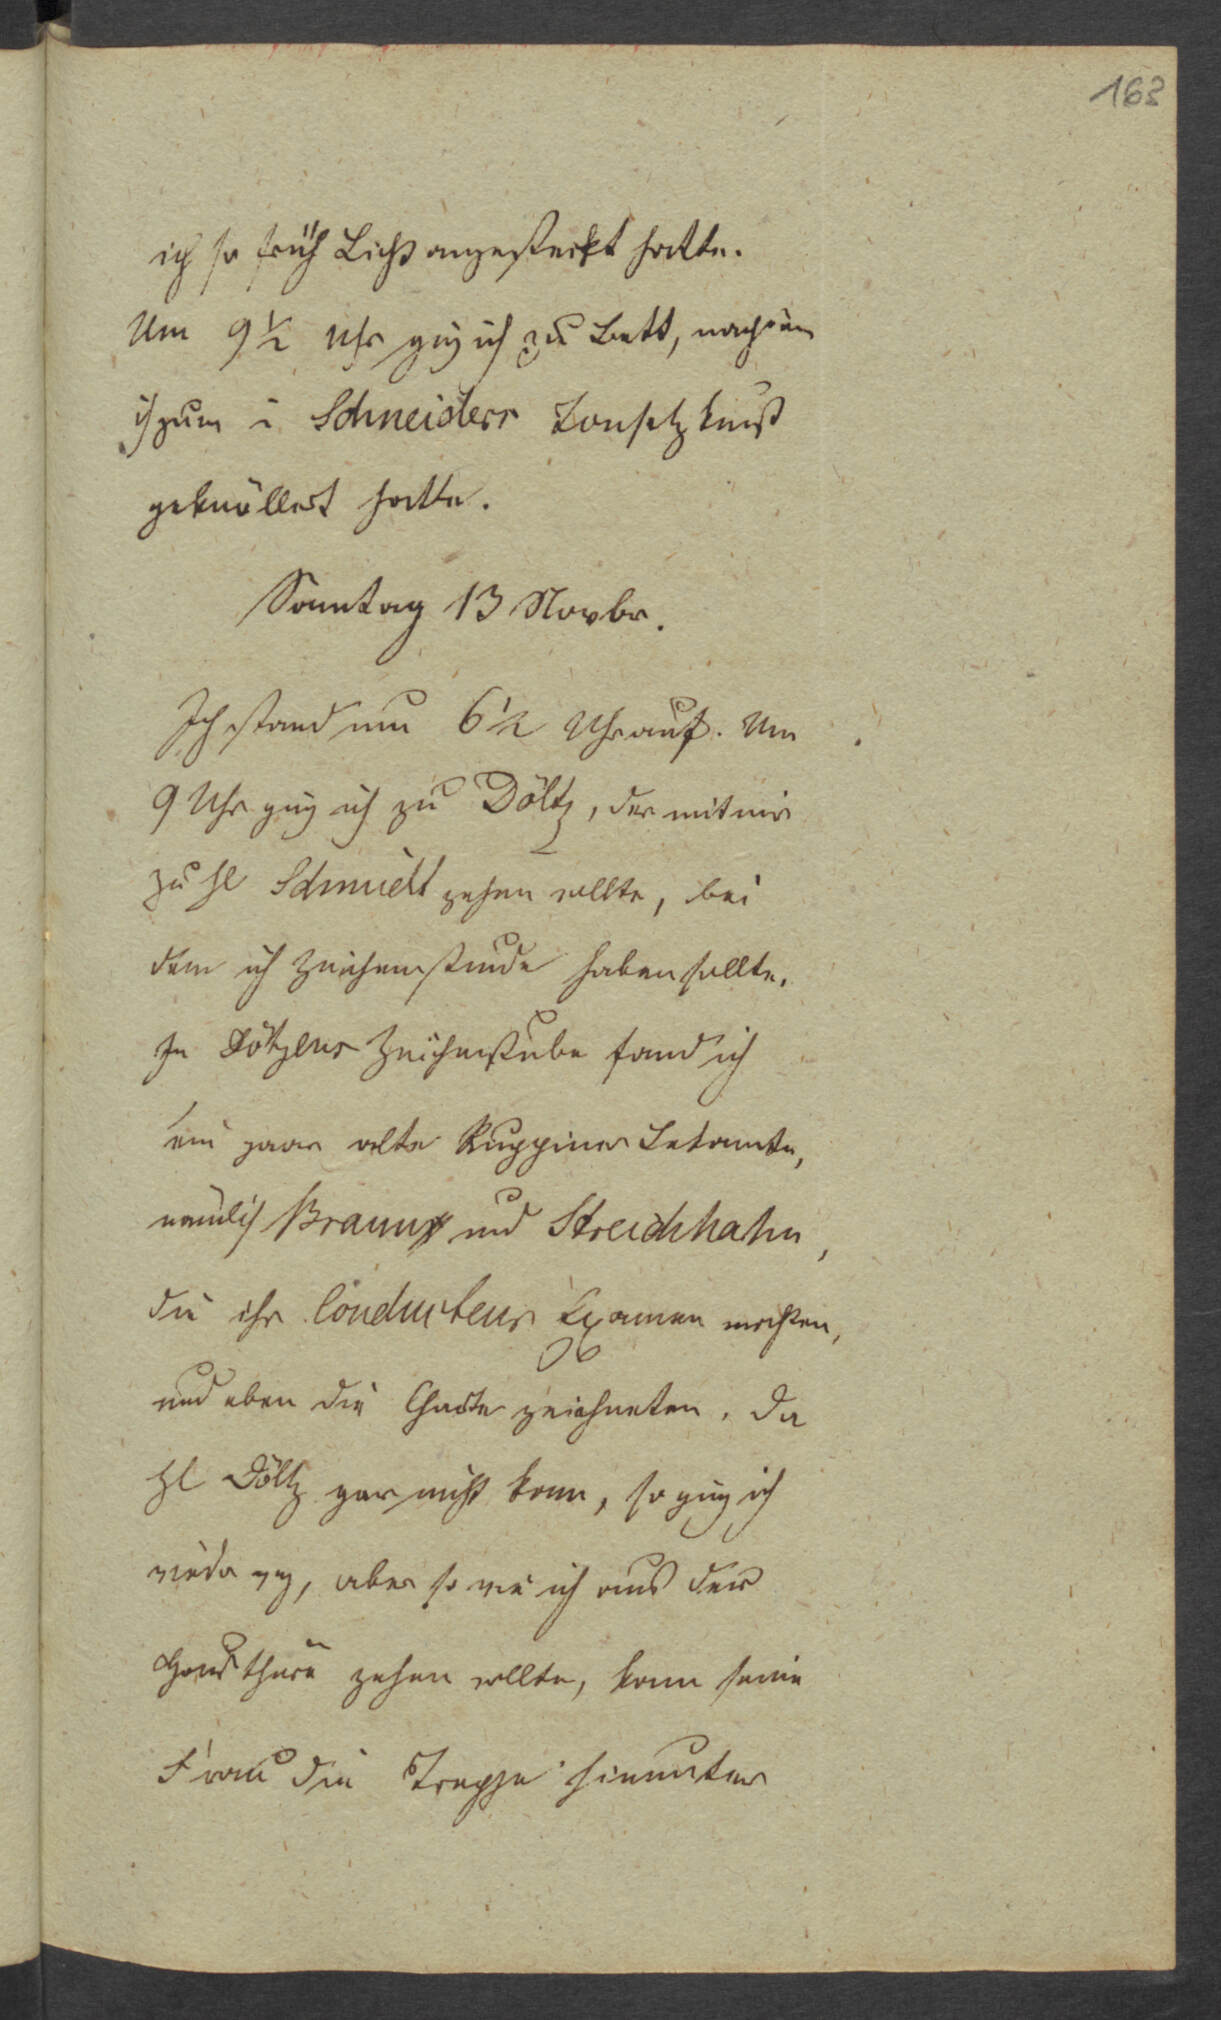 163
ich so früh Licht angesteckt hatte.
Um 9 1/2 Uhr ging ich zu Bett, nachdem
ich zum i Schneiders Tonsetzkunst
geknöllert hatte.
Sonntag 13 Novbr.
Ich stand um 6 1/2 Uhr auf. Um
9 Uhr ging ich zu Döltz, der mit mir
zu H Schmidt gehen wollte, bei
dem ich Zeichenstunde haben sollte.
In Döltzens Zeichenstube fand ich
ein paar alte Ruppiner Bekannte,
nämlich Braun und Streichhahn,
die ihr Conducteur Examen machten,
und eben die Charte zeichneten. Da
H Döltz gar nicht kam, so ging ich
wieder weg, aber so wie ich aus der
Hausthüre gehen wollte, kam seine
Frau die Treppe hinunter